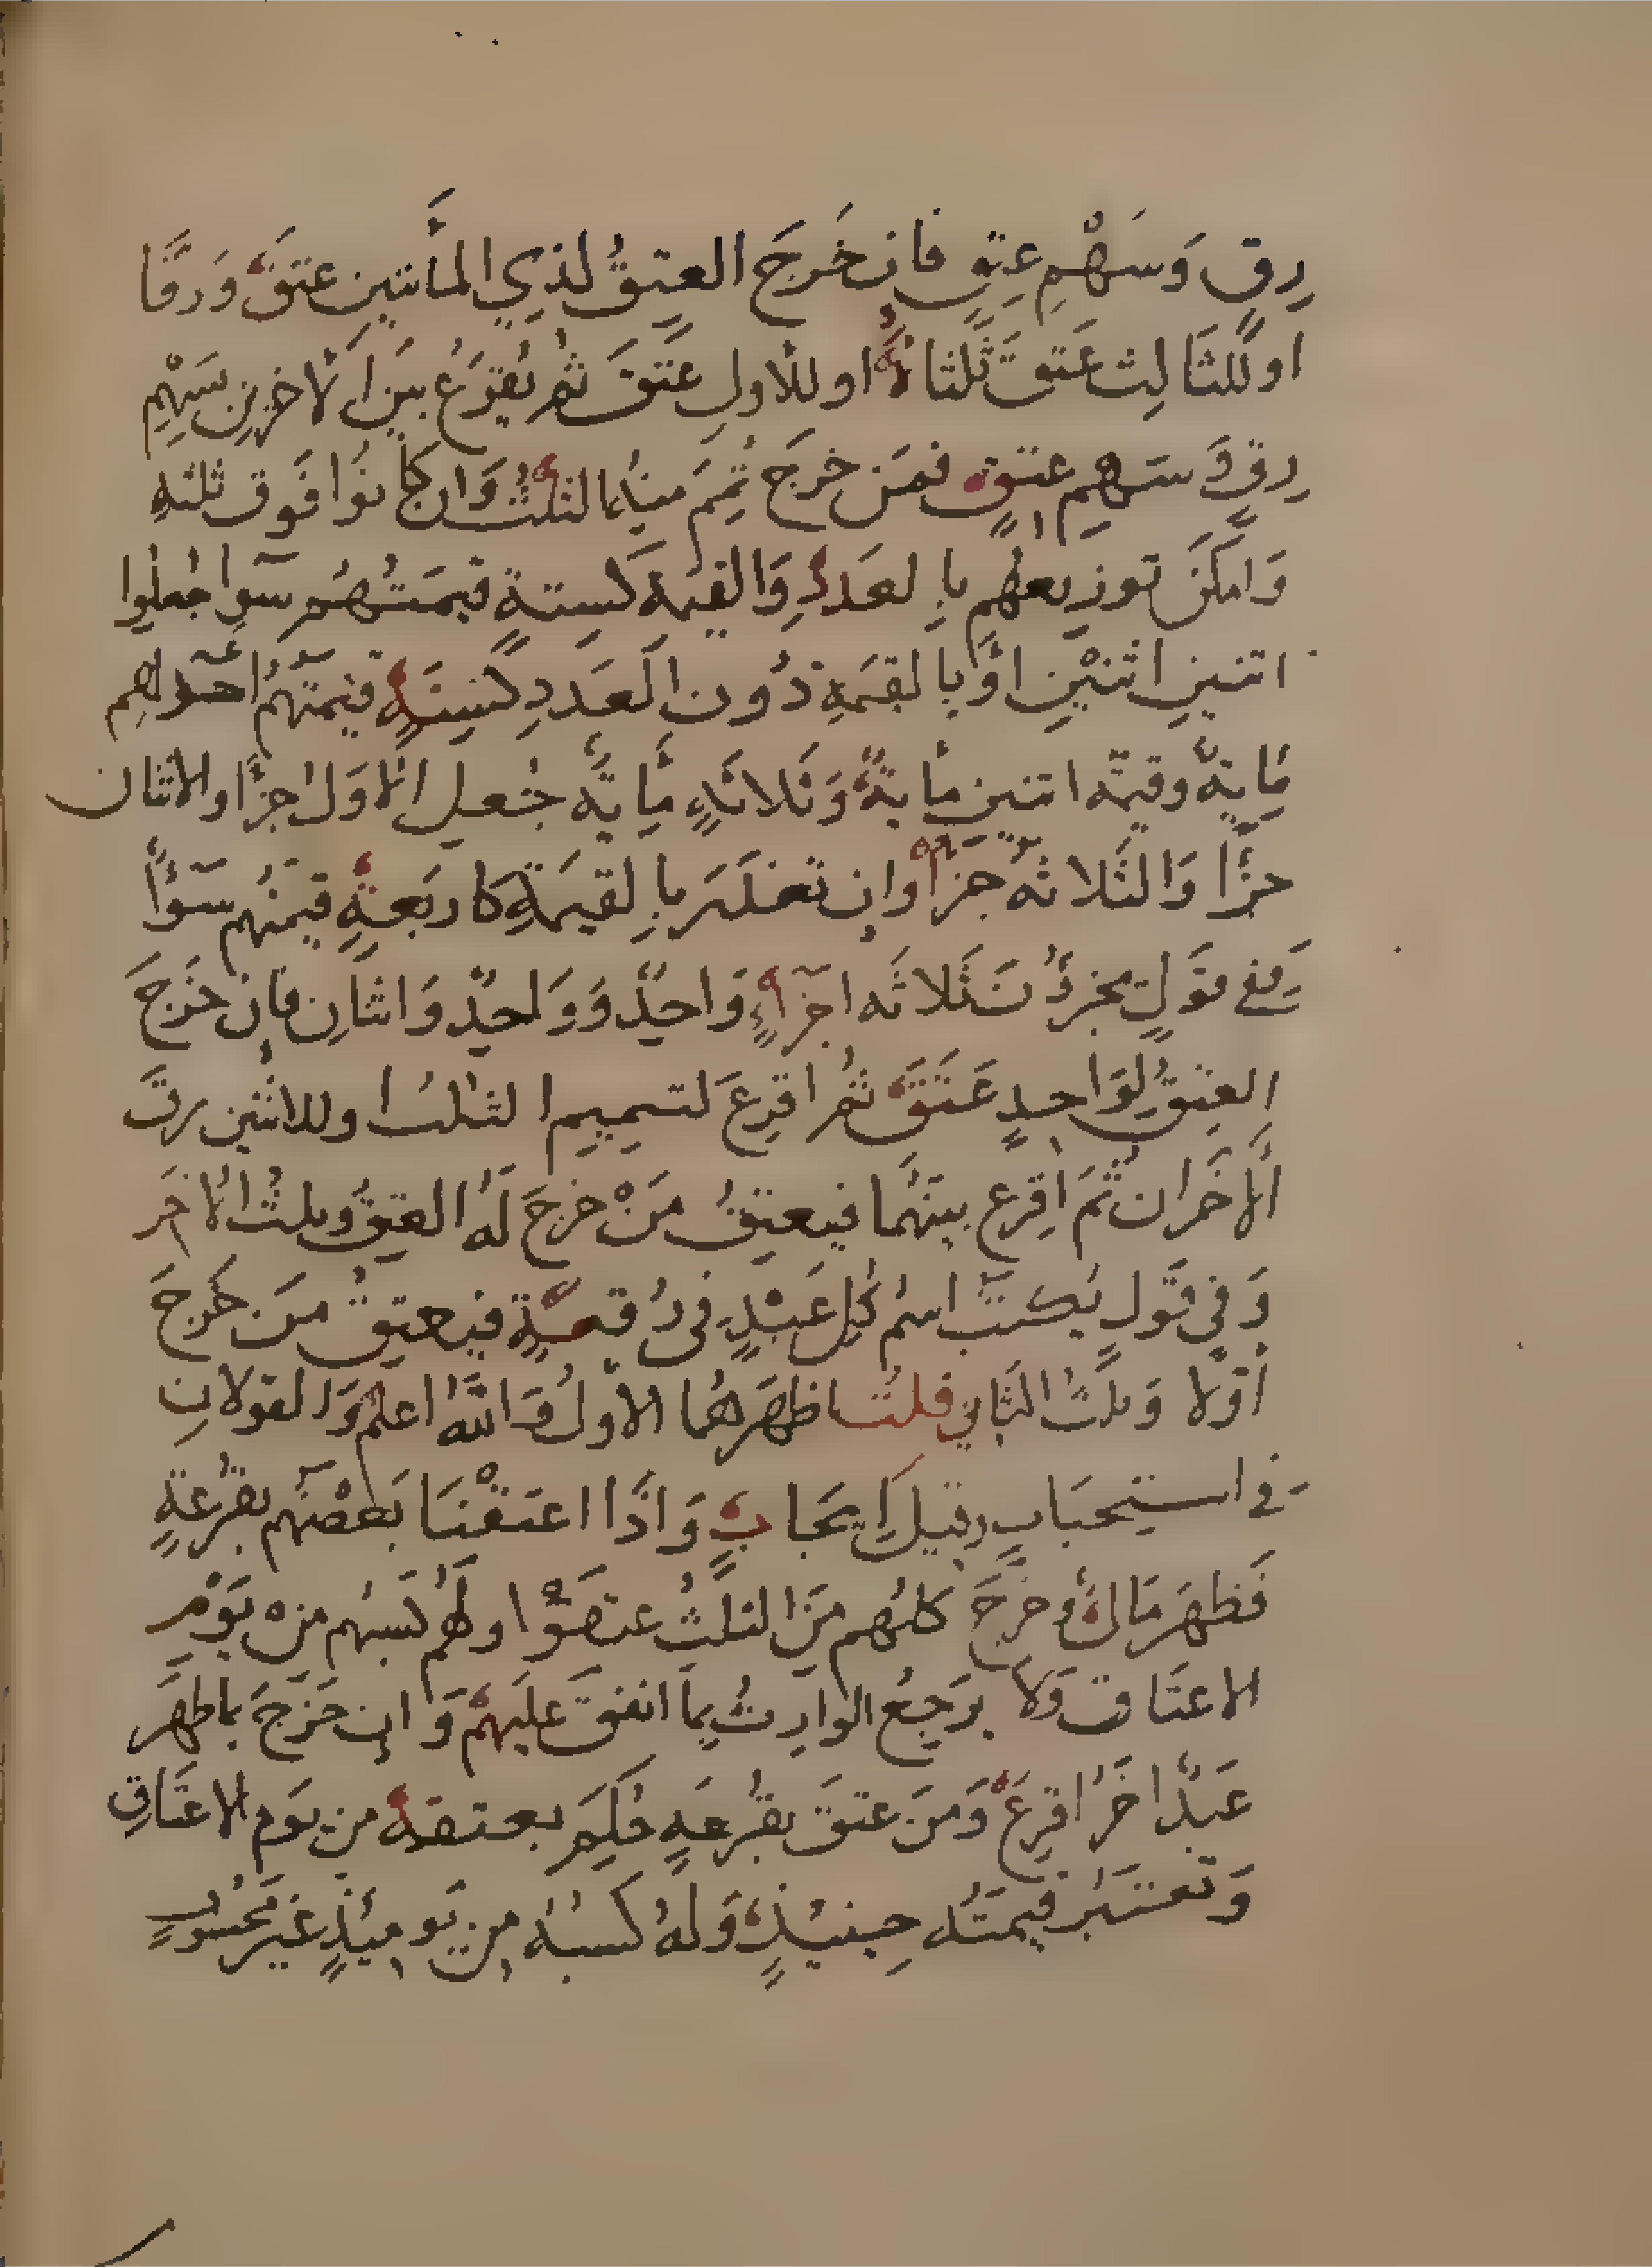 رِقٍ وَسَهْمِ عِتقٍ فان خَرجَ العِتقُ لذِي المأتين عتقَ وَرقَّا
او للثالِث عَتقَ ثلثاهُ او للاولِ عَتقَ ثم يُقرَعُ بينَ الاخرين بسَهْمِ
رقٍ وَسهمِ عتقٍ فمَن خرجَ تُممَ منهُ الثلثُ وَان كانوُا فَوق ثلثهِ
وَامكنَ توزيعهُم بالعَددِ وَالقيمة كستةٍ قيمتُهُم سوا جُعلوا
اثنين اثنيْنِ اوْ بالقيمَةِ دُون العَددِ كستةٍ قيمتهُم احدهم
مَاية وقيمة اثنين ماية وَثلاثةٍ مَاية جُعل الاوَلُ جزًا والاثنان
جزًا وَالثلاثة جزأ وان تعذَر بالقيمَةِ كاربَعةٍ قيمتهُم سَوآ
فَفي قوَلٍ يجزؤن ثَلاثه اجزآءٍ وَاحدٌ وَوَاحدٌ وَاثنانِ فان خرَجَ
العتقُ لِوَاحدٍ عَتَقَ ثم اقرعَ لتتمِيمِ الثلث وللاثنين رقَ
الاخَران ثمَ اقرع بينهُما فيعتِقُ مَنْ خرجَ لهُ العتِقُ وثلثُ الاخَر
وَفي قَولٍ يُكتبُ اسمُ كلِ عَبْدٍ في رُقعةٍ فيعتِقُ مَن خرَجَ
أوَلا وَثلثُ الثَاني قلتُ اظهَرهُما الاوّلُ وَاللهُ اعلمُ وَالقولانِ
في استِحبَابٍ وقيلَ إيجابٍ وَاذَا اعتقْنَا بَعضَهُم بقُرعةٍ
فَظهَرَ مَالٌ وخرَجَ كلهُم منَ الثلُثِ عتقوْا ولهُم كسبُهم منْ يَوْمِ
الاعتَاق وَلا يَرجِعُ الوارِثُ بمَا انفقَ عليَهمْ وَان خرَجَ بما ظهَرَ
عَبدٌ اخَرُ اقرِعَ وَمنَ عتقَ بقُرعَةٍ حُكِمَ بعتقهِ من يوَم الاعتَاقِ
وَتعتبَرُ قيمتُه حِينئذٍ وَلهُ كسبُهُ من يَوميئذٍ غيرَ محَسُوبٍ